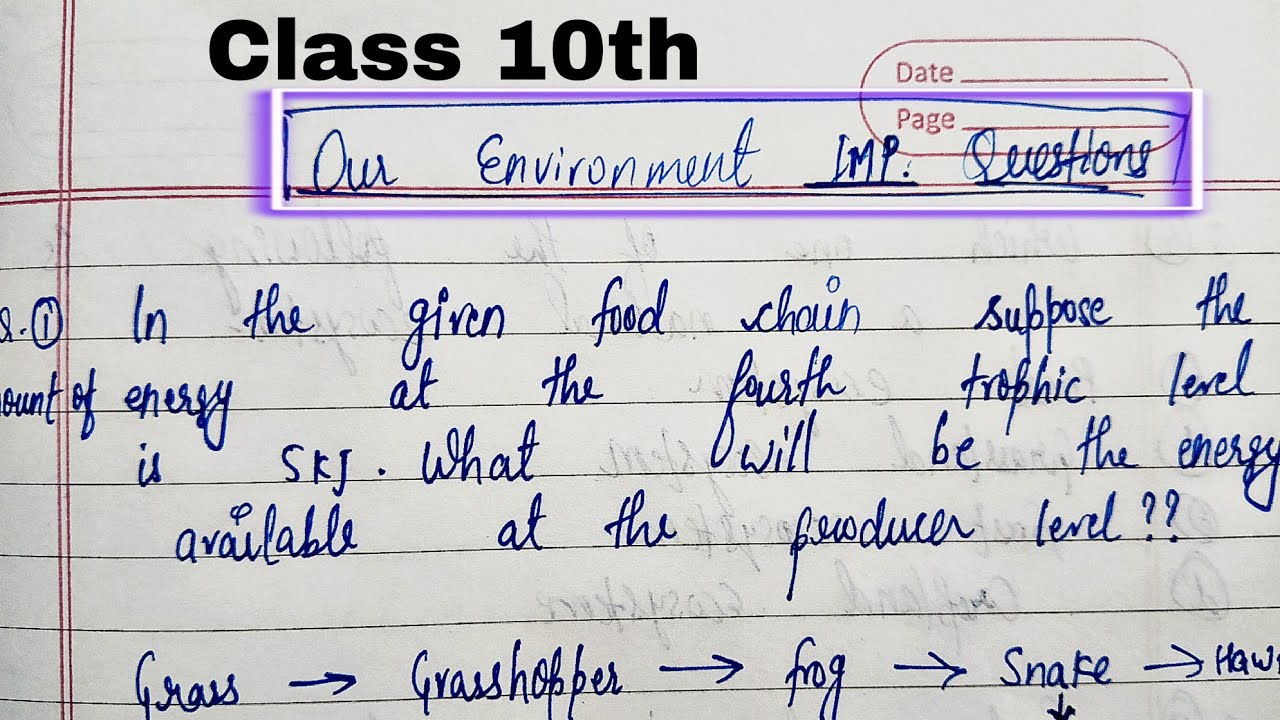 Class 10th
Date
Page
Our Environment IMP. Questions
In the given food chain suppose the
ount of energy at the fourth trophic level
is 5KJ. What will be the energy
available at the producer level??
Grass → Grasshopper → frog → Snake → Haw